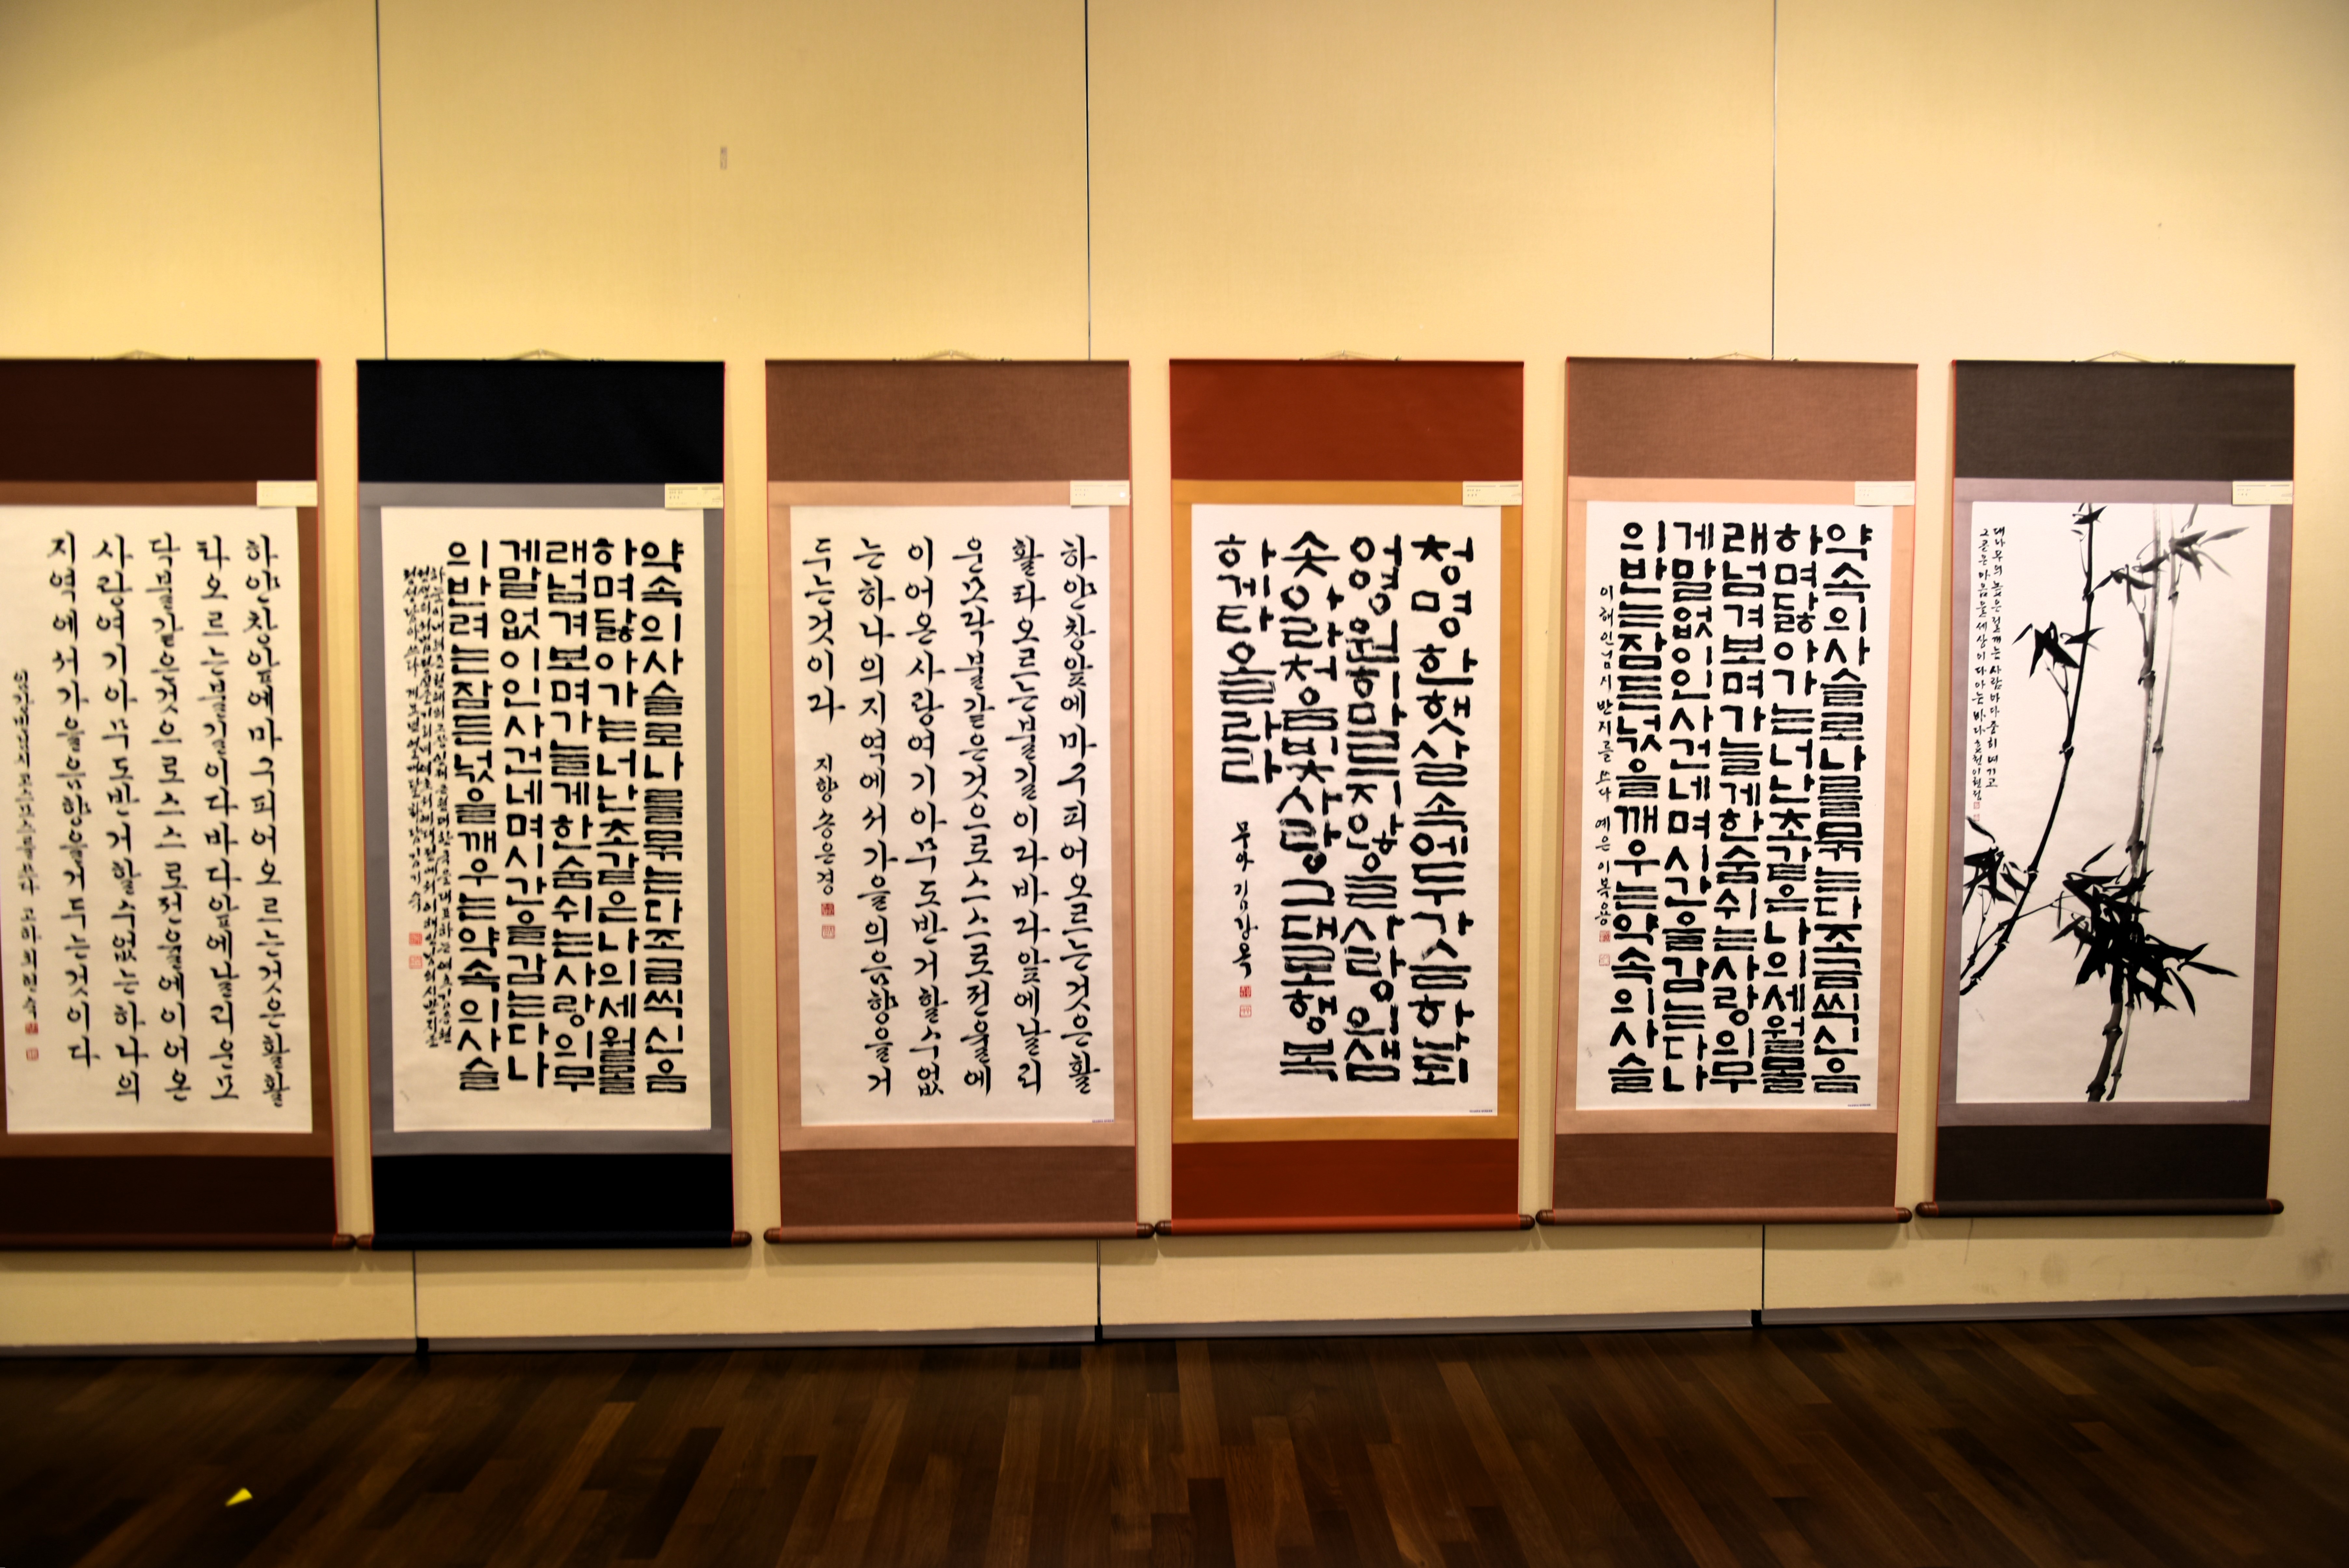 하얀창앞에마구피어오르는것은활활
타오르는불길이다바다앞에날리운
불같은것으로스스로전율에이어온
사랑여기아무도반거할수없는하나의
지역에서가을음향을거두는것이다
약속의사슬로나를묶는다조금씩신음
하며닳아가는너난초같은나의세월몰
래넘겨보며가늘게한숨쉬는사랑의무
게말없이인사건네며시간을감는다나
의반려는잠든넋을깨우는약속의사슬
하얀창앞에마구피어오르는것은활
활타오르는불길이라바라앞에날리
불같은것으로스스로전율에
이어온사랑여기아무도반거할수없
는하나의지역에서가을의음향을거
두는것이라 지향 송은경
청명한햇살속에두가슴하나되
어영원히마르지않을사랑의샘
처음빛사랑그대로행복
무아 김강옥
약속의사슬로나를묶는다조금씩신음
하며닳아가는너난초같은나의세월몰
래넘겨보며가늘게한숨쉬는사랑의무
게말없이인사건네며시간을감는다나
의반려는잠든넋을깨우는약속의사슬
이해인님시 반지를 쓰다 예은 이복용
대나무의높은절개는사람마다중히여기고
그곧은마음을세상이다아는바다